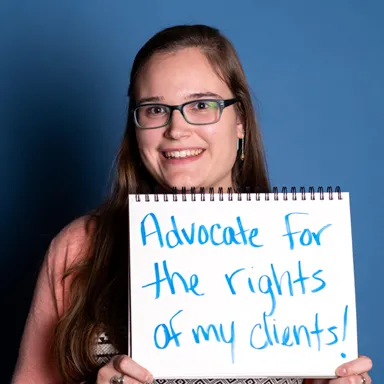 Advocate for
the rights
of my clients!